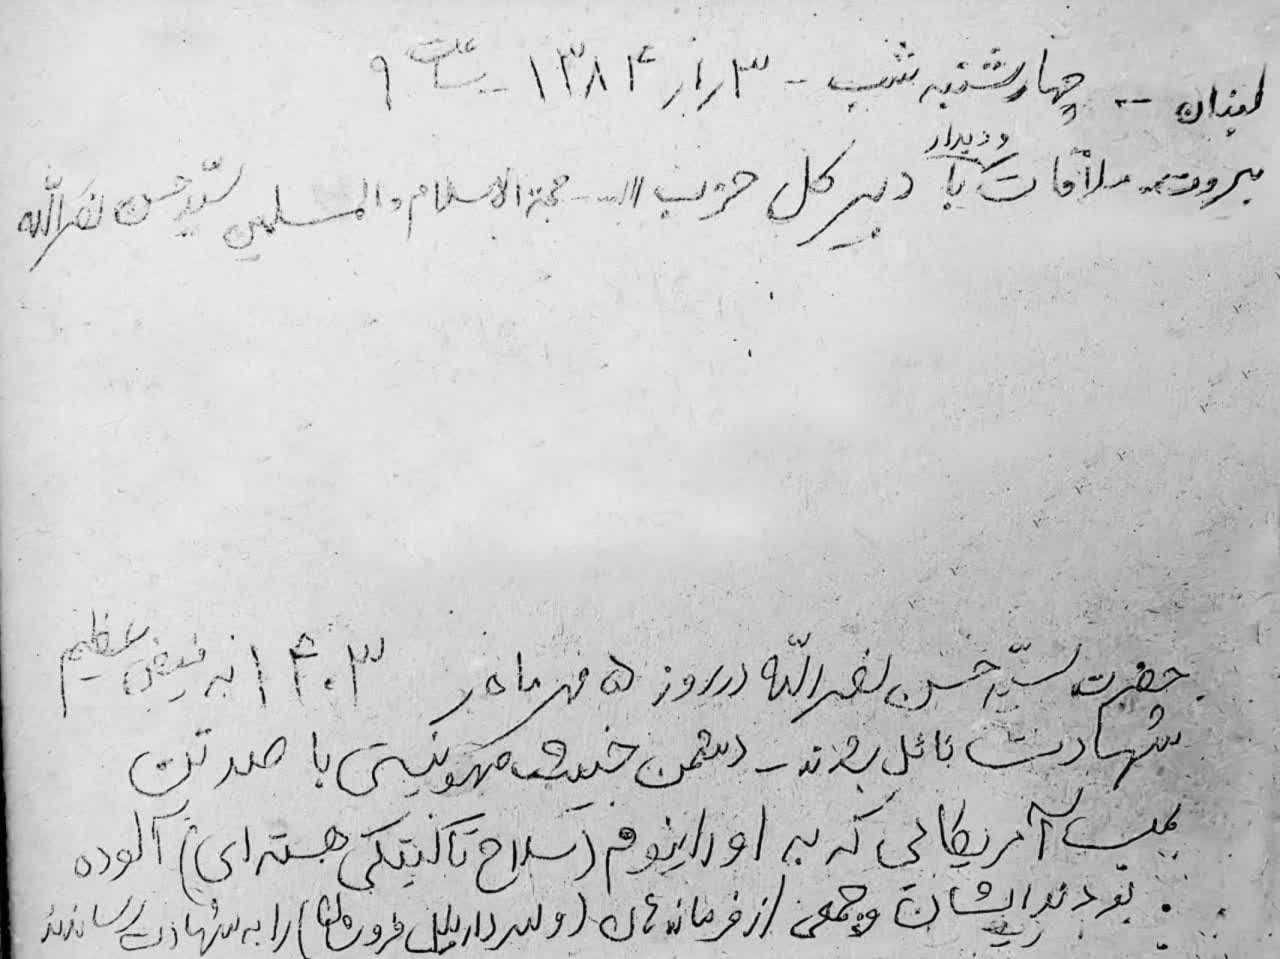 لبنان -- چهارشنبه شب - ۱۳۸۴/۱/۳ - ساعت ۹
و دیدار
بیروت - ملاقات با دبیر کل حزب الله - حجة الاسلام والمسلمین سیّد حسن نصرالله
حضرت سیّد حسن نصرالله در روز ۵ مهر ماه ۱۴۰۳ به فیض عظیم
شهادت نائل شدند - دشمن خبیث صهونیستی با صد تن
بمب آمریکائی که به اورانیوم (سلاح تاکتیکی هسته ای) آلوده
بودند ایشان و جمعی از فرمانده های (و سردار نیل فروشان) را به شهادت رساندند